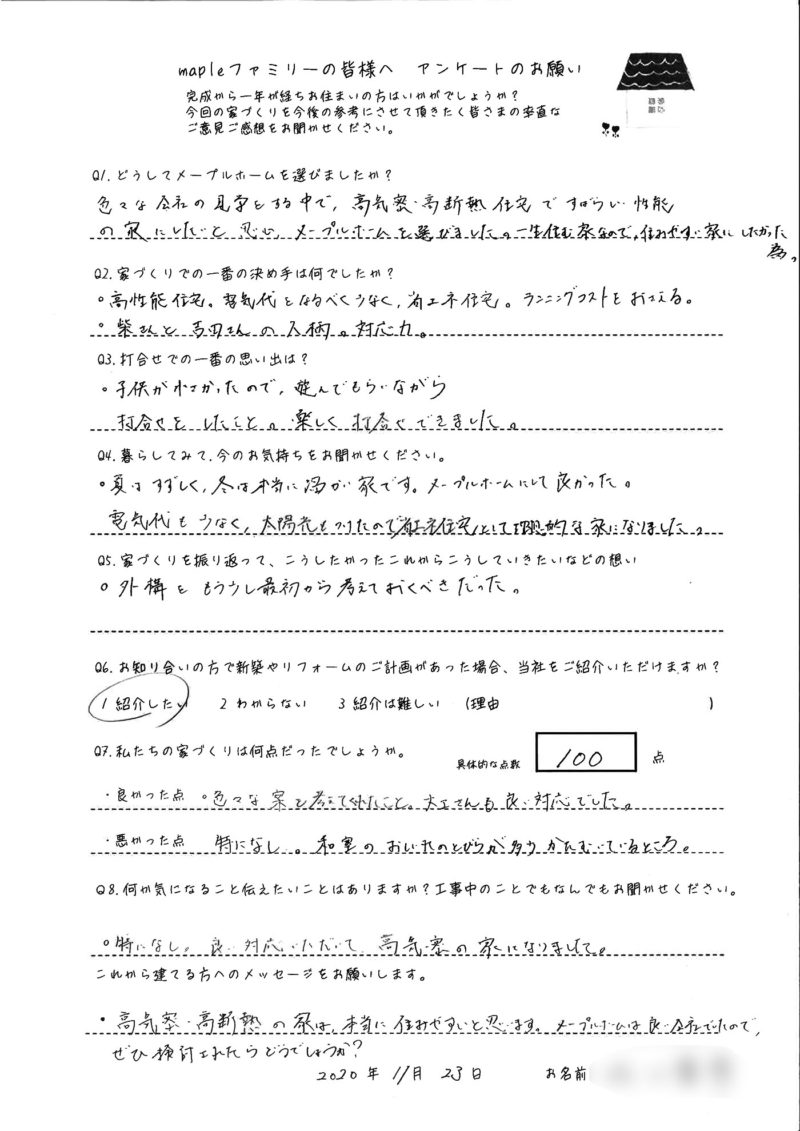 mapleファミリーの皆様へ アンケートのお願い
完成から一年が経ちお住まいの方はいかがでしょうか？
今回の家づくりを今後の参考にさせて頂きたく皆さまの率直な
ご意見ご感想をお聞かせください。
Q1.どうしてメープルホームを選びましたか？
色々な会社の見学をする中で、高気密・高断熱住宅ですばらしい性能
の家にしたいと思い、メープルホームを選びました。一生住む家なので、住みやすい家にしたかった
為。
Q2.家づくりでの一番の決め手は何でしたか？
・高性能住宅。電気代をなるべく少なく、省エネ住宅。ランニングコストをおさえる。
・柴さんと吉田さんの人柄。対応力。
Q3.打合せでの一番の思い出は？
・子供が小さかったので、遊んでもらいながら
打合せをしたこと。楽しく打合せできました。
Q4.暮らしてみて、今のお気持ちをお聞かせください。
・夏はすずしく、冬は本当に温かい家です。メープルホームにして良かった。
電気代も少なく、太陽光もつけたので省エネ住宅として理想的な家になりました。
Q5.家づくりを振り返って、こうしたかったこれからこうしていきたいなどの想い
・外構をもう少し最初から考えておくべきだった。
Q6.お知り合いの方で新築やリフォームのご計画があった場合、当社をご紹介いただけますか？
1 紹介したい 2 わからない 3 紹介は難しい （理由 ）
Q7.私たちの家づくりは何点だったでしょうか。 具体的な点数 100 点
・良かった点 ・色々な案を考えてくれたこと。大工さんも良い対応でした。
・悪かった点 特になし。和室のおしいれのとびらが少しかたむいているところ。
Q8.何か気になること伝えたいことはありますか？工事中のことでもなんでもお聞かせください。
・特になし。良い対応いただいて、高気密の家になりまして。
これから建てる方へのメッセージをお願いします。
・高気密・高断熱の家は、本当に住みやすいと思います。メープルホームは良い会社でしたので、
ぜひ検討されたらどうでしょうか？
2020年 11月 23日 お名前